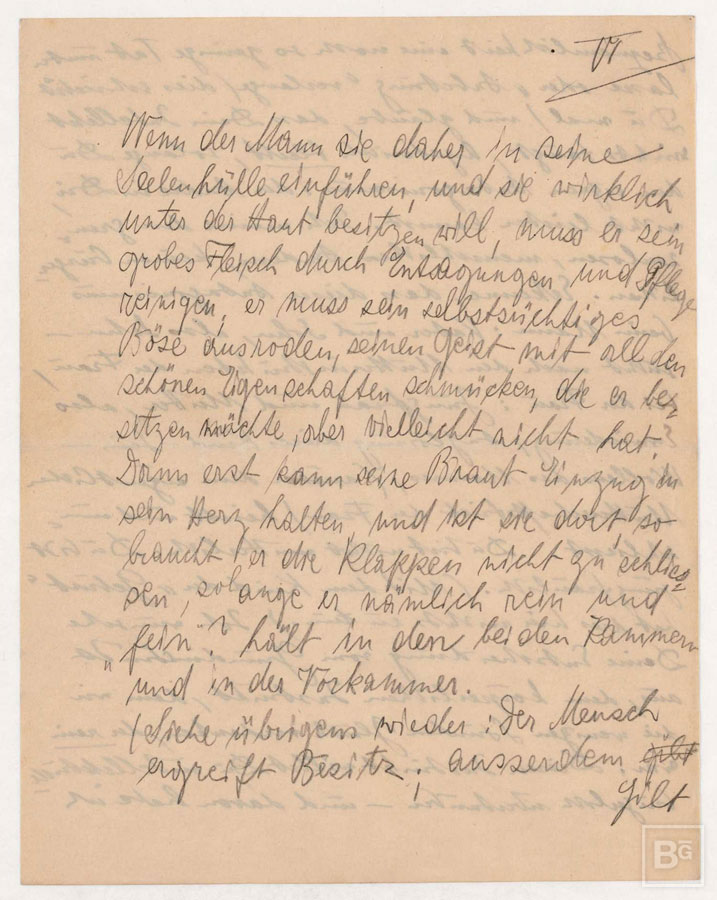 VI
Wenn der Mann sie daher in seine
Seelenhülle einführen, und sie wirklich
unter der Haut besitzen will, muss er sein
grobes Fleisch durch Entsagungen und Pflege
reinigen, er muss sein selbstsüchtiges
Böse ausroden, seinen Geist mit all den
schönen Eigenschaften schmücken, die er be=
sitzen möchte, aber vielleicht nicht hat.
Dann erst kann seine Braut Einzug in
sein Herz halten, und ist sie dort, so
braucht er die Klappen nicht zu schlies=
sen, solange er nämlich rein und
„fein“? hält in den beiden Kammern
und in der Vorkammer.
(Siehe übrigens wieder: Der Mensch
ergreift Besitz; ausserdem gilt
gilt
BG